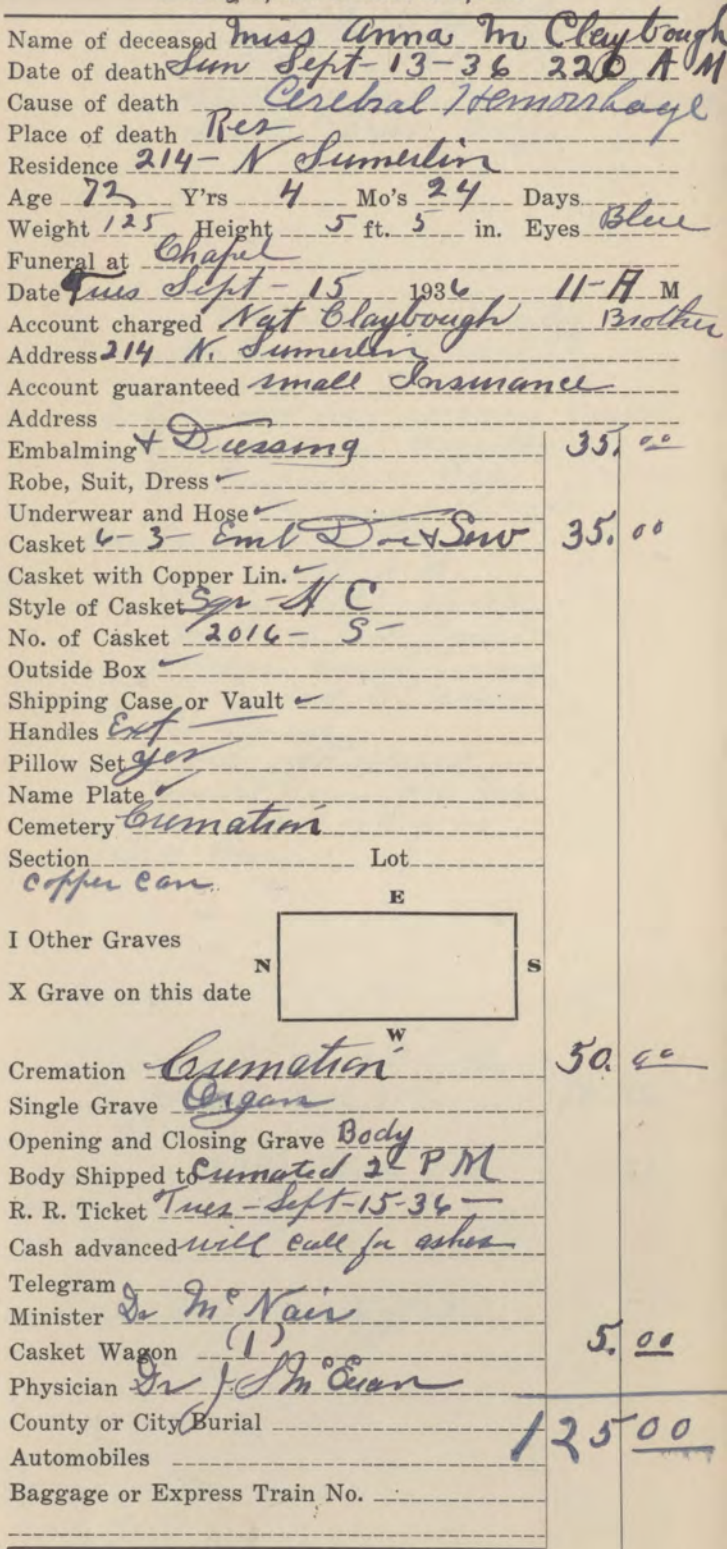 Name of deceased Miss Anna M Claybough
Date of death Sun Sept-13-36 220 A M
Cause of death Cerebral Hemorrhage
Place of death Res
Residence 214- N Sumerlin
Age 72 Y'rs 4 Mo's 24 Days
Weight 125 Height 5 ft. 5 in. Eyes Blue
Funeral at Chapel
Date Tues Sept - 15 1936 11-A M
Account charged Nat Claybough Brother
Address 214 N. Sumerlin
Account guaranteed small Insurance
Address
Embalming + Dressing 35.00
Robe, Suit, Dress
Underwear and Hose
Casket 6-3- Emb D 35.00
Casket with Copper Lin.
Style of Casket Sqr - H C
No. of Casket 2016- S-
Outside Box
Shipping Case or Vault
Handles Ext
Pillow Set yes
Name Plate
Cemetery Cremation
Section Lot
Copper Can.
E
I Other Graves
N S
X Grave on this date
W
Cremation Cremation 50.00
Single Grave Organ
Opening and Closing Grave Body
Body Shipped to Cremated 2- P M
R. R. Ticket Tues-Sept-15-36-
Cash advanced will call for ashes
Telegram
Minister Dr McNair
Casket Wagon (1) 5.00
Physician Dr J S McEwan
County or City Burial 125 00
Automobiles
Baggage or Express Train No.